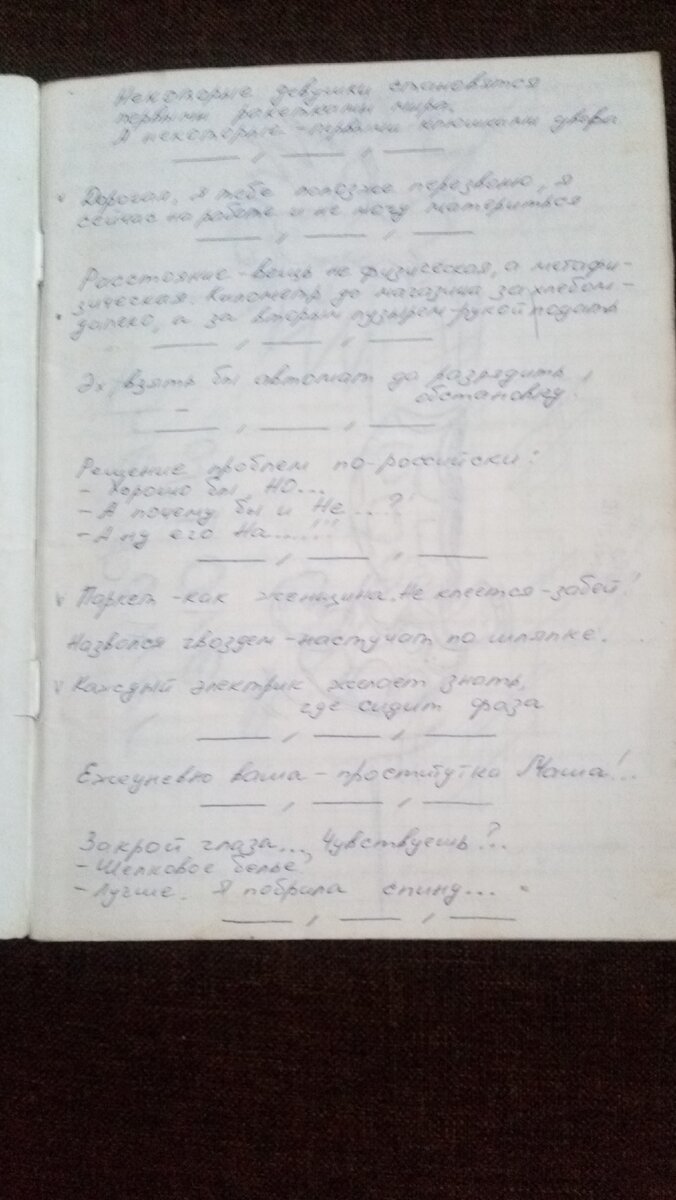 Некоторые девушки становятся
первыми ракетками мира.
А некоторые - первыми клюшками двора
— " — " —
Дорогая, я тебе попозже перезвоню, я
сейчас на работе и не могу материться
— " — " —
Расстояние - вещь не физическая, а метафи-
зическая. Километр до магазина за хлебом -
далеко, а за вторым пузырём - рукой подать
— " — " —
Эх, взять бы автомат да разрядить
обстановку!
— " — " —
Решение проблем по-российски:
- Хорошо бы, НО...
- А почему бы и Не...?
- А ну его На......!!!
— " — " —
Паркет - как женщина. Не клеется - забей!
Назвался гвоздем - настучат по шляпке...
Каждый электрик желает знать,
где сидит фаза
— " — " —
Ежедневно ваша - проститутка Маша!..
— " — " —
Закрой глаза..., Чувствуешь?..
- Шелковое белье.
- Лучше. Я побрила спину...
— " — " —